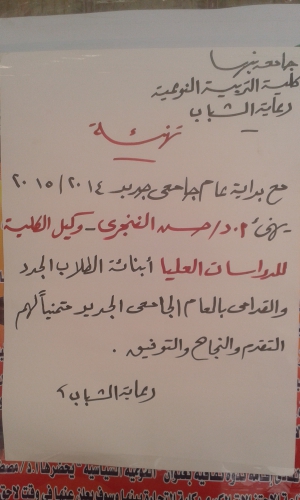 جامعة بنها
كلية التربية النوعية
رعاية الشباب
تهنئة
مع بداية عام جامعى جديد ٢٠١٤/٢٠١٥
يهنئ أ.د/حسن الفنجرى - وكيل الكلية
للدراسات العليا أبنائة الطلاب الجدد
والقدامى بالعام الجامعى الجديد متمنياً لهم
التقدم والنجاح والتوفيق.
رعاية الشباب